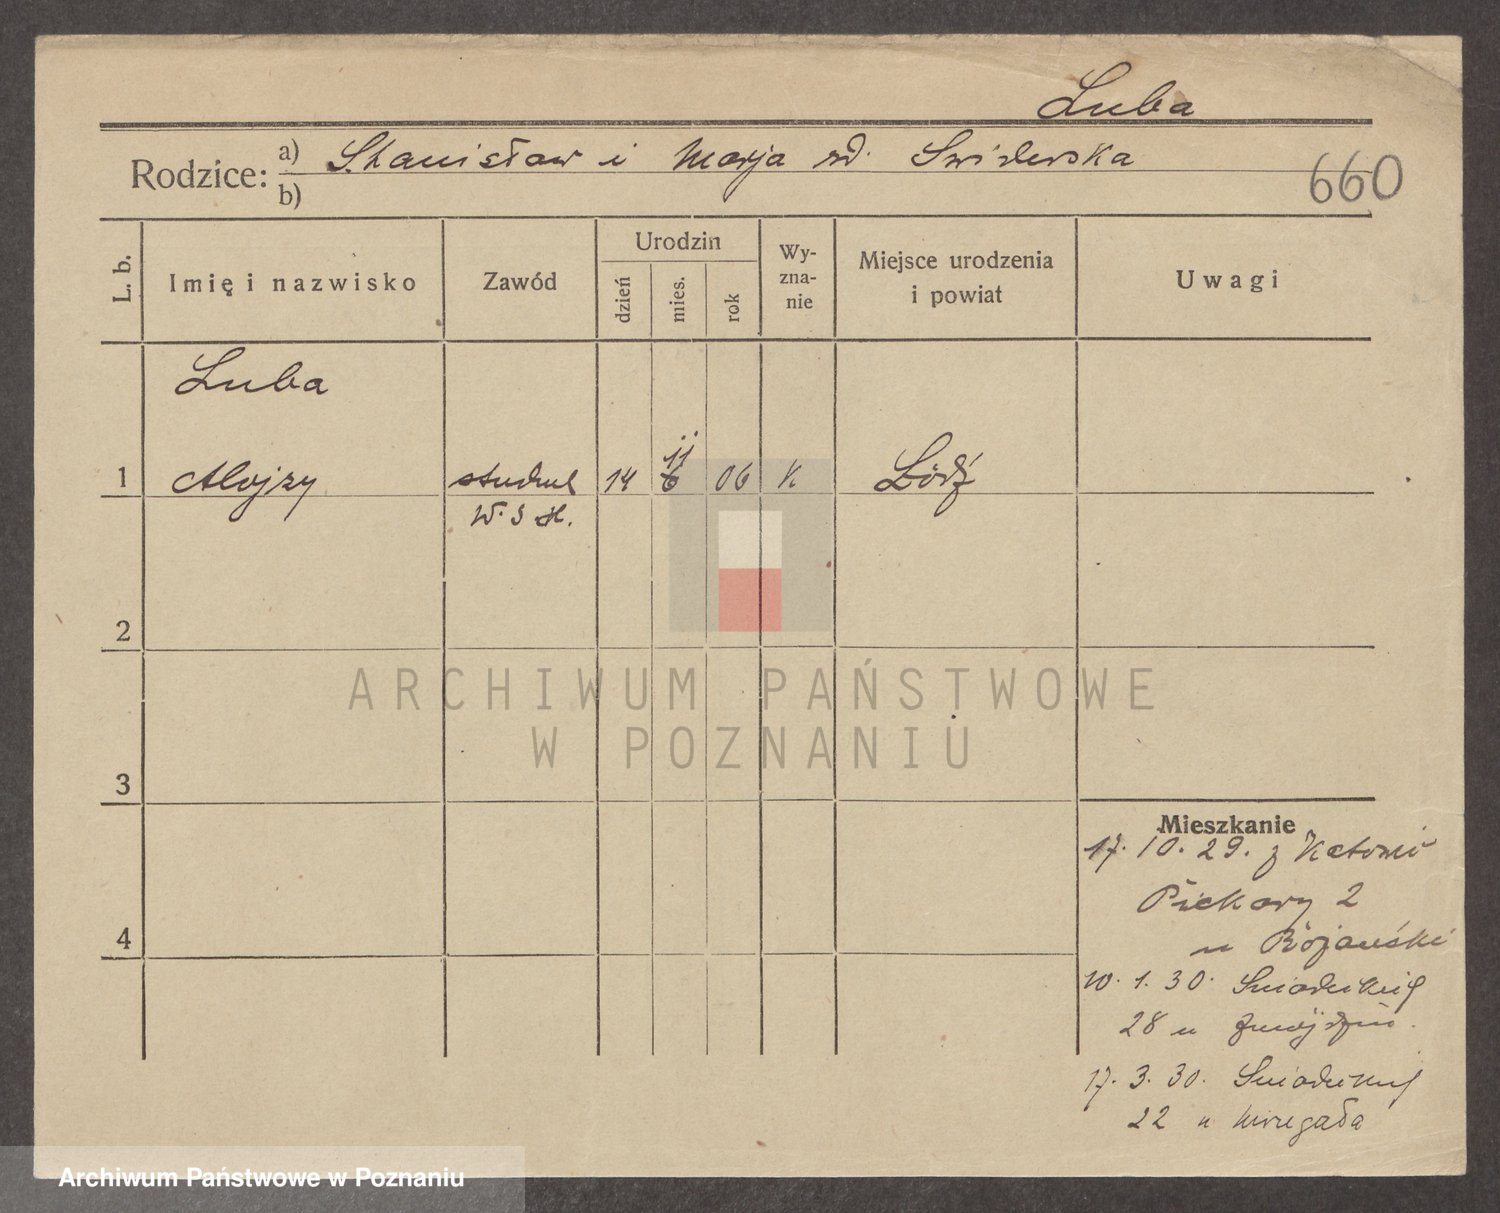 Luba
Rodzice: a) Stanisław i Marja rd. Swiderska
b)
660
L. b.
Imię i nazwisko
Zawód
Urodzin
dzień
mies.
rok
Wy-
zna-
nie
Miejsce urodzenia
i powiat
Uwagi
Luba
11
1 Alojzy student 14 6 06 K Łódź
W. S. H.
2
3
4
ARCHIWUM PAŃSTWOWE
W POZNANIU
Mieszkanie
17. 10. 29. z
Piekary 2
u Bojański
10. 1. 30. Śniadeckich
28 u
17. 3. 30. Śniadeckich
22 u
Archiwum Państwowe w Poznaniu